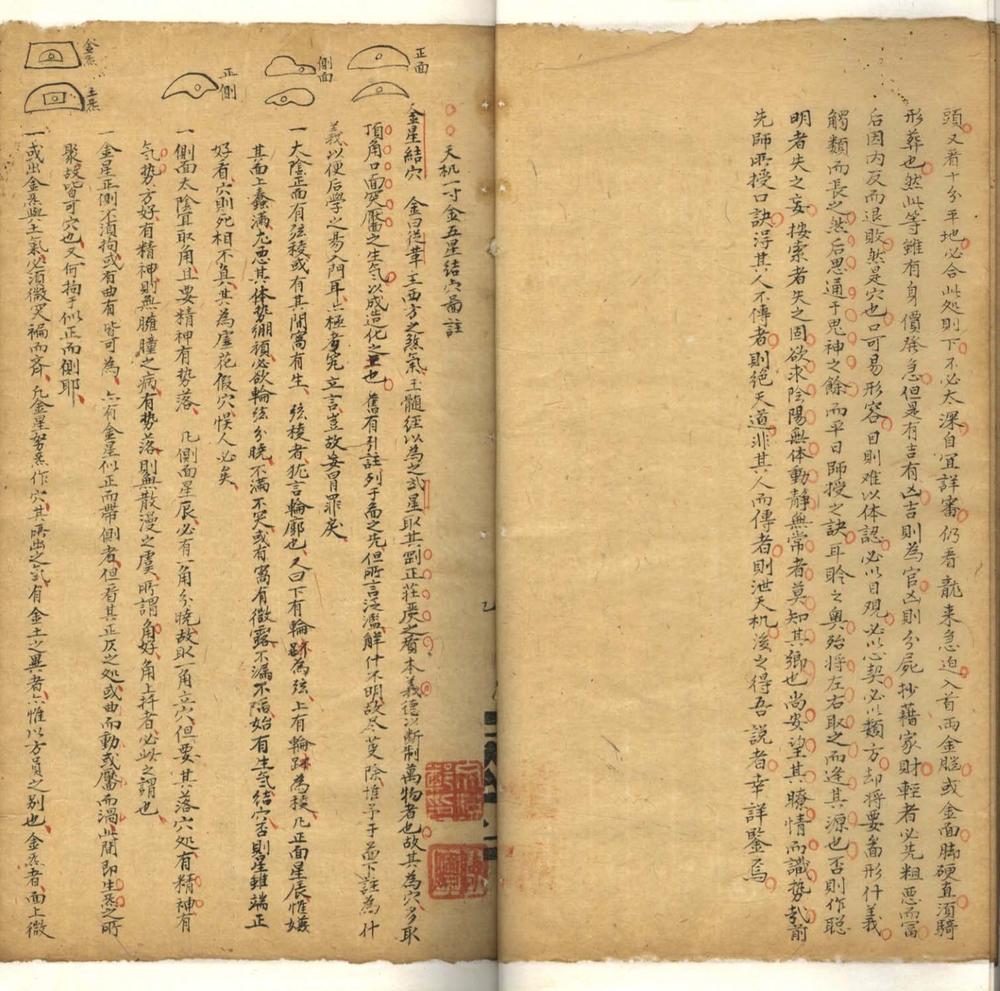 頭又看十分平地必合此処則下不必太深自宜詳審仍看龍来急迫入首兩金臨或金面脚硬直須騎
形葬也然此等雖有身價發急但是有吉有凶吉則為官凶則分屍抄藉家財輕者必先粗悪而冨
后因内反而退敗然是穴也口可易形容目則难以体認必以目观必以心契必以類方却将要畵形什義
觸類而長之然后思通于鬼神之餘而平日師授之訣耳聆之奥殆将左右取之而逢其源也否則作聡
明者失之妄按索者失之固欲求陰陽無体動静無常者莫知其鄉也尚安望其瞭情而識势哉前
先師所授口訣淂其人不傳者則绝天道非其人而傳者則泄天机後之得吾説者幸詳鑒焉
天机一寸金五星結穴畵註
正面
側面
正側
金炁
土炁
金星結穴 金曰從革主西方之煞氣玉髓經以為之武星取其剛正莊嚴之資本義德以斷制萬物者也故其為穴多取
頂角口面突靥之生気以成造化之主也 舊有引註列于畵之先但所言泛濫解什不明故尽芟除惟予于畵下註為什
義以便后學之易入門耳亡極者宪立言豈故妄冒罪戾
一太陰正面有弦稜或有其開窩有生 弦稜者犹言輪廓也又曰下有輪跡為弦上有輪跡為稜凡正面星辰惟嫌
其面上蠢满尤悪其体势绷頑必欲輪弦分曉不满不突或有窩有微露不漏不陷始有生气結穴否則星雖端正
好看穴則死相不真其為虚花假穴悮人必矣
一側面太陰宜取角且要精神有势落 凡側面星辰必有一角分曉故取一角立穴但要其落穴処有精神有
气势方好有精神則無臃腫之病有势落則無散漫之虞所謂角好角上扦者必此之謂也
一金星正側不湏拘或有曲有皆可為 亦有金星似正而帶側者但看其正仄之处或曲而動或靥而渦此間即生炁之所
聚故皆可穴也又何拘于似正而側耶
一或出金炁與土氣必須微突褊而齊凡金星努炁作穴其所出之気有金土之異者亦惟以方員之别也金炁者面上微